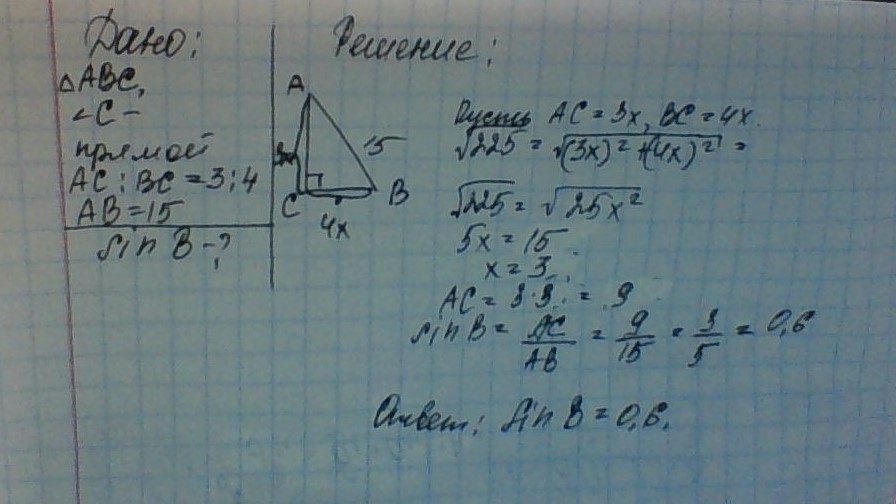 Дано:
△ABC,
∠C –
прямой
AC : BC = 3 : 4
AB = 15
sin B – ?
Решение:
A
3x
15
C
B
4x
Пусть AC = 3x, BC = 4x.
√225 = √(3x)² + (4x)² =
√225 = √25x²
5x = 15
x = 3;
AC = 3·3 = 9
sin B = AC/AB = 9/15 = 3/5 = 0,6
Ответ: sin B = 0,6.